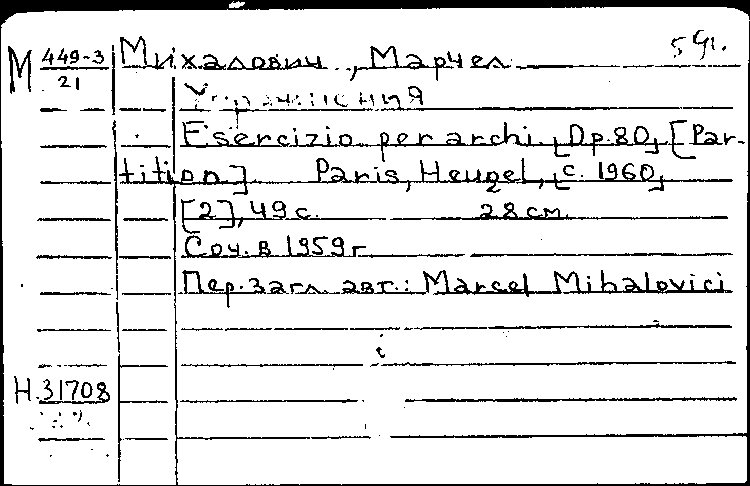 М 449-3/21 Михалович, Марчел 5 ч1.
Упражнения
Esercizio per archi. [Op. 80], [Par-
tition]. Paris, Heugel, [c. 1960],
[2], 49 с. 28 см.
Соч. в 1959 г.
Пер. загл. авт.: Marcel Mihalovici
Н.31708